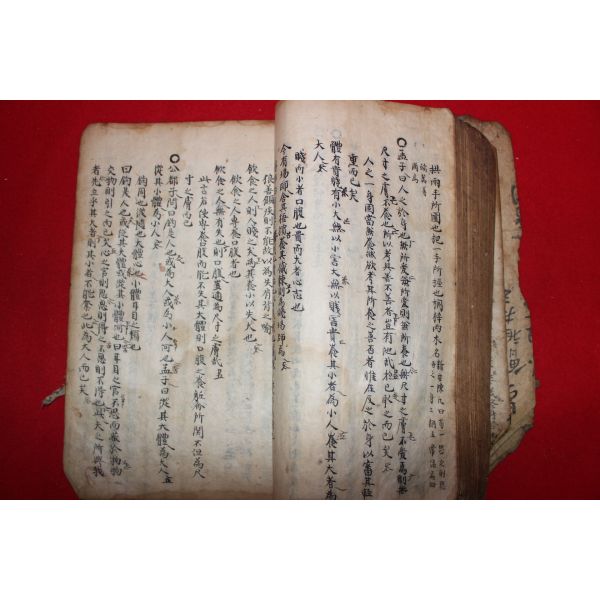 拱兩手所圍也把一手所握也桐梓兩木名
○孟子曰人之於身也兼所愛兼所愛則兼所養也無尺寸之膚不愛焉則無
尺寸之膚不養也所以考其善不善者豈有他哉於己取之而已矣
人之一身固當兼養然欲考其所養之善否者惟在反之於身以審其輕
重而已矣
體有貴賤有小大無以小害大無以賤害貴養其小者為小人養其大者為
大人
賤而小者口腹也貴而大者心志也
今有場師舍其梧檟養其樲棘則為賤場師焉
狼善顧疾則不能故以為失肩背之喻
飲食之人則人賤之矣為其養小以失大也
飲食之人專養口腹者也
飲食之人無有失也則口腹豈適為尺寸之膚哉
此言若使專養口腹而能不失其大體則口腹之養軀命所關不但為尺
寸之膚而已
○公都子問曰鈞是人也或為大人或為小人何也孟子曰從其大體為大人
從其小體為小人
鈞同也從隨也大體心也小體耳目之類也
曰鈞是人也或從其大體或從其小體何也曰耳目之官不思而蔽於物物
交物則引之而已矣心之官則思思則得之不思則不得也此天之所與我
者先立乎其大者則其小者不能奪也此為大人而已矣